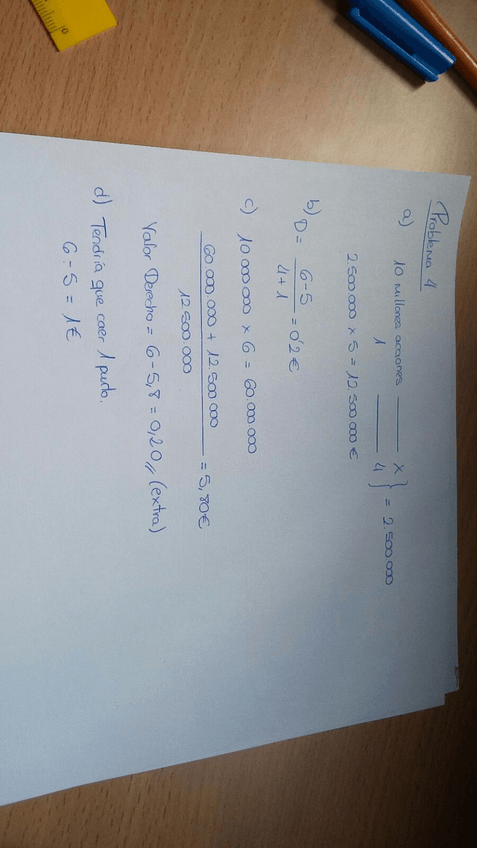 Problema 4
a) 10 millones acciones —— x } = 2.500.000
1 —— 4
2500.000 x 5 = 12.500.000€
b) D = 6-5 / 4+1 = 0'2€
c) 10.000.000 x 6 = 60.000.000
60.000.000 + 12.500.000 / 12.500.000 = 5,80€
Valor Derecho = 6-5,8 = 0,20,, (extra)
d) Tendría que caer 1 punto.
6-5 = 1€